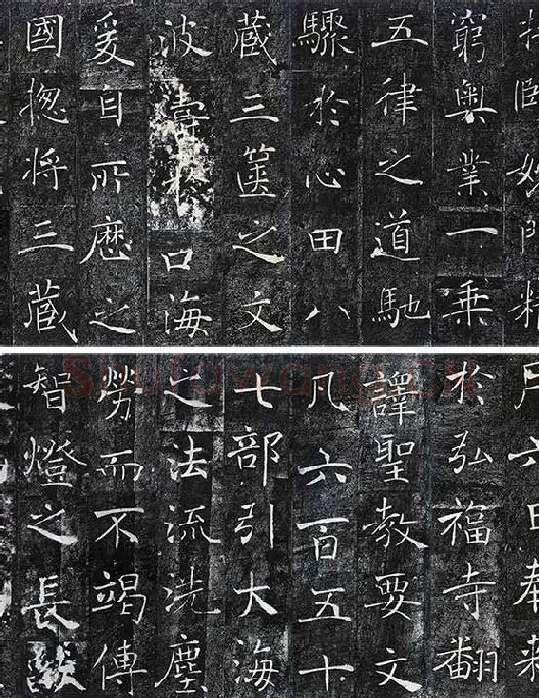 妙門精
窮奧業一乘
五律之道馳
驟於心田八
藏三篋之文
波濤於口海
爰自所歷之
國惣将三藏
月六日奉勑
於弘福寺翻
譯聖教要文
凡六百五十
七部引大海
之法流洗塵
勞而不竭傳
智燈之長焰